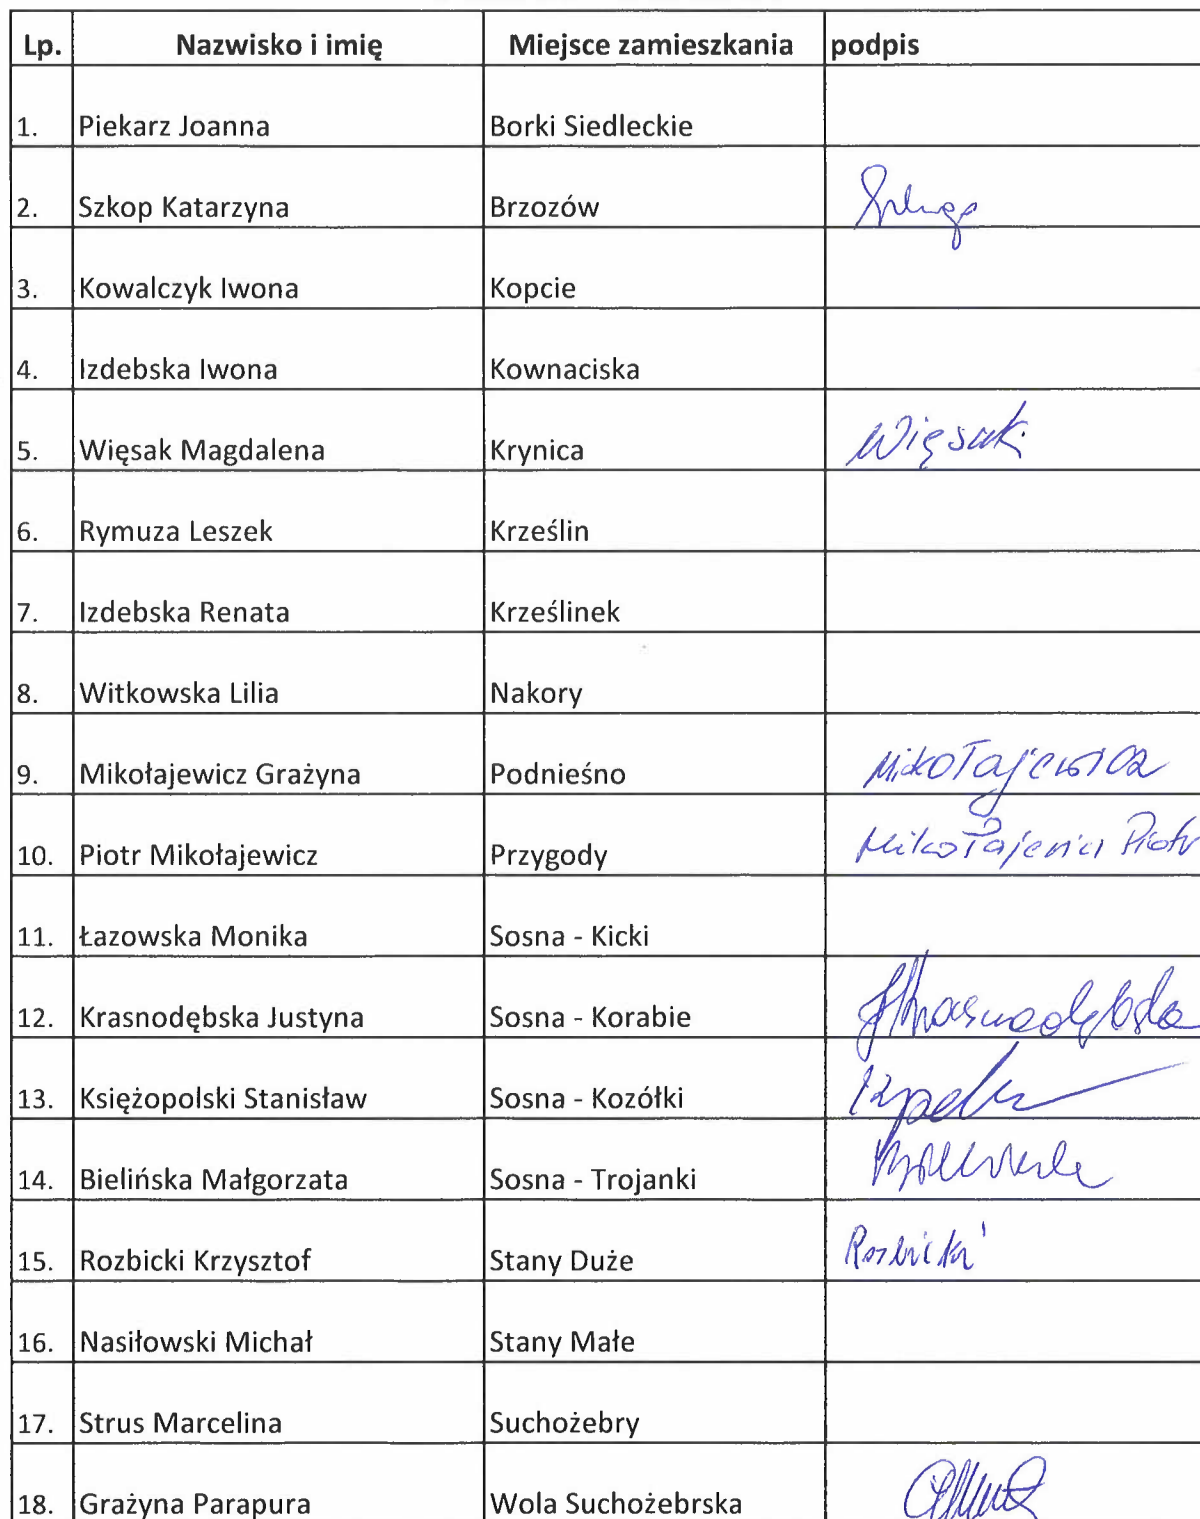 Lp. Nazwisko i imię Miejsce zamieszkania podpis
1. Piekarz Joanna Borki Siedleckie
2. Szkop Katarzyna Brzozów
3. Kowalczyk Iwona Kopcie
4. Izdebska Iwona Kownaciska
5. Więsak Magdalena Krynica Więsak
6. Rymuza Leszek Krześlin
7. Izdebska Renata Krześlinek
8. Witkowska Lilia Nakory
9. Mikołajewicz Grażyna Podnieśno Mikołajewicz
10. Piotr Mikołajewicz Przygody Mikołajewicz Piotr
11. Łazowska Monika Sosna - Kicki
12. Krasnodębska Justyna Sosna - Korabie JKrasnodębska
13. Księżopolski Stanisław Sosna - Kozółki
14. Bielińska Małgorzata Sosna - Trojanki
15. Rozbicki Krzysztof Stany Duże Rozbicki
16. Nasiłowski Michał Stany Małe
17. Strus Marcelina Suchożebry
18. Grażyna Parapura Wola Suchożebrska